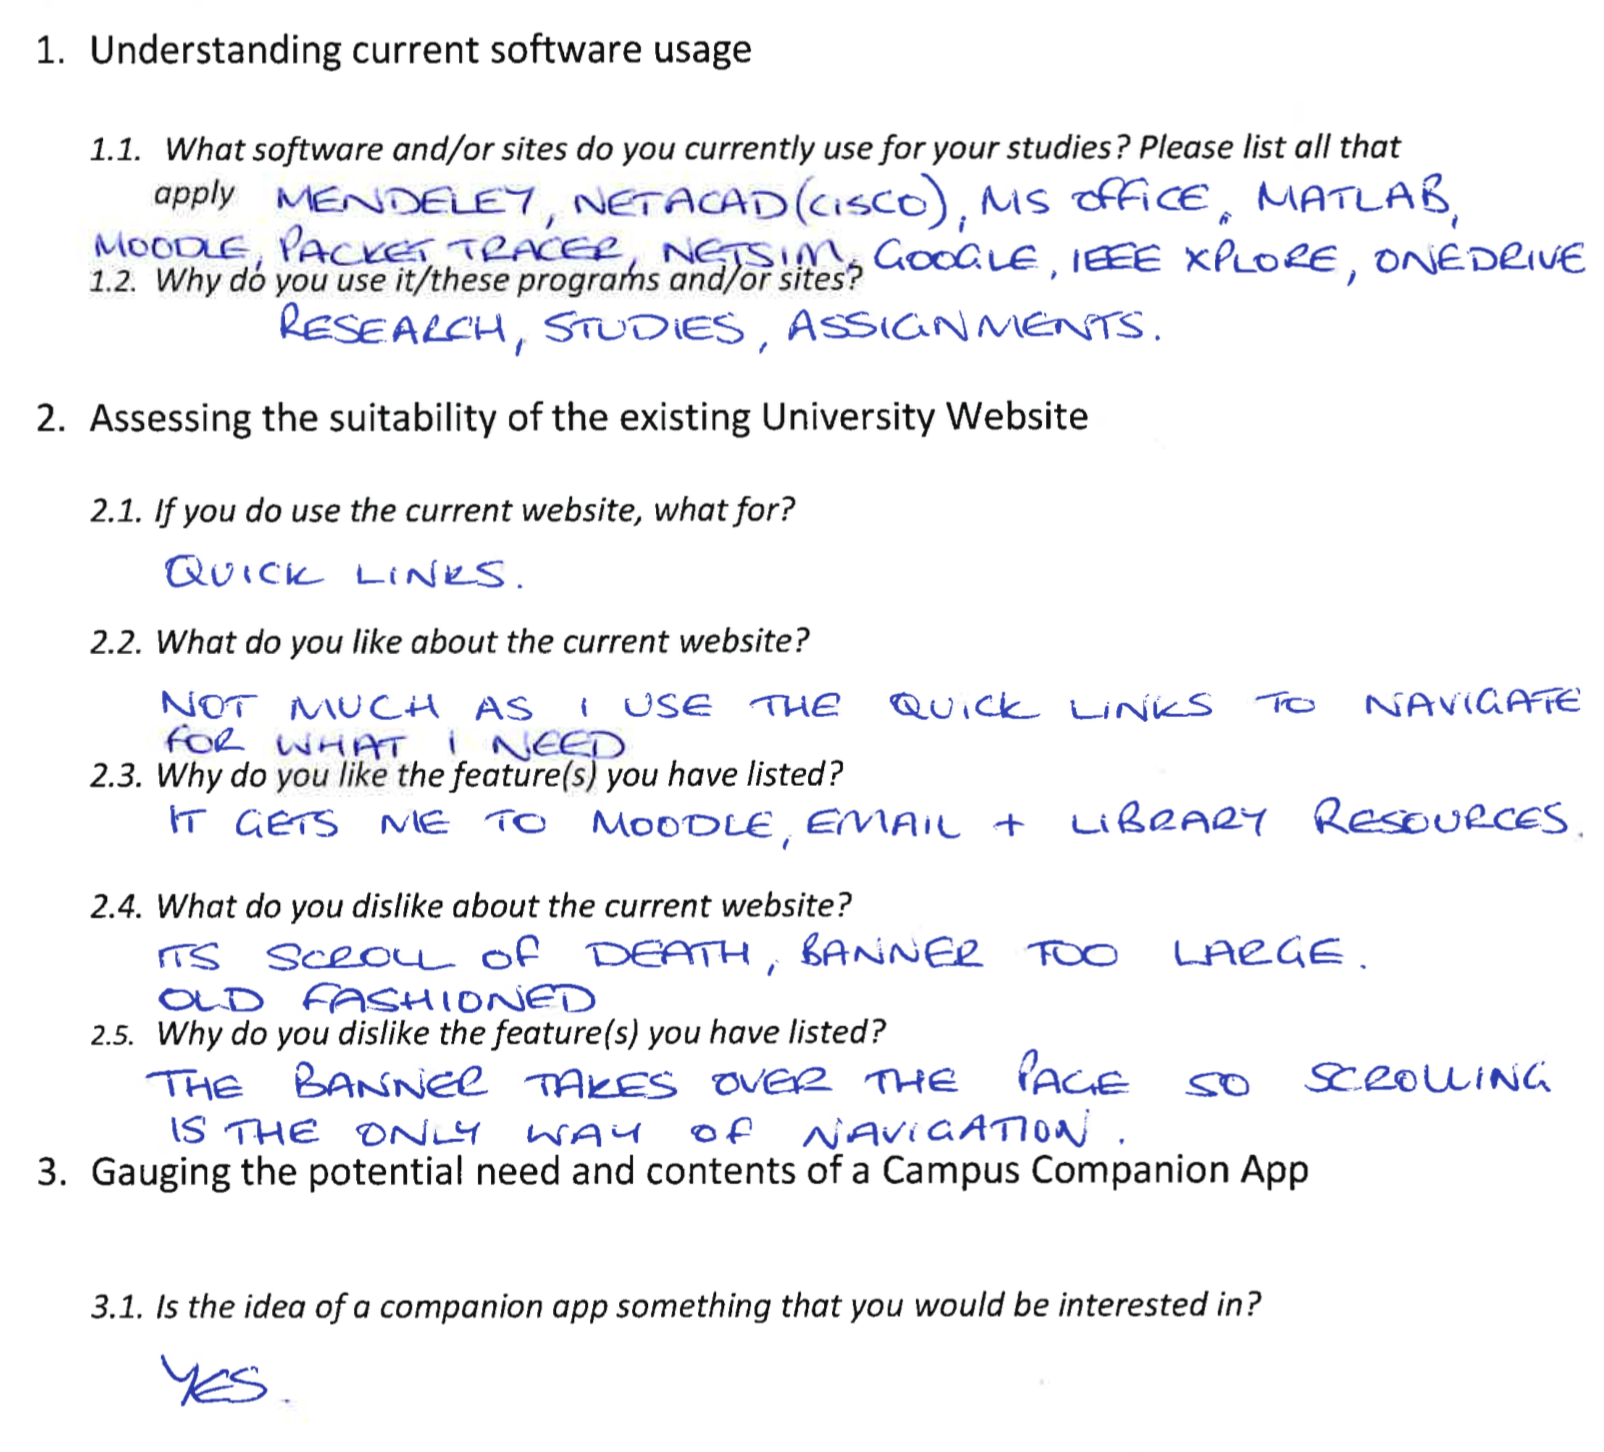 1. Understanding current software usage
1.1. What software and/or sites do you currently use for your studies? Please list all that
apply MENDELEY, NETACAD (CISCO), MS OFFICE, MATLAB,
MOODLE, PACKET TRACER, NETSIM, GOOGLE, IEEE XPLORE, ONEDRIVE
1.2. Why do you use it/these programs and/or sites?
RESEARCH, STUDIES, ASSIGNMENTS.
2. Assessing the suitability of the existing University Website
2.1. If you do use the current website, what for?
QUICK LINKS.
2.2. What do you like about the current website?
NOT MUCH AS I USE THE QUICK LINKS TO NAVIGATE
FOR WHAT I NEED
2.3. Why do you like the feature(s) you have listed?
IT GETS ME TO MOODLE, EMAIL + LIBRARY RESOURCES.
2.4. What do you dislike about the current website?
ITS SCROLL OF DEATH, BANNER TOO LARGE.
OLD FASHIONED
2.5. Why do you dislike the feature(s) you have listed?
THE BANNER TAKES OVER THE PAGE SO SCROLLING
IS THE ONLY WAY OF NAVIGATION.
3. Gauging the potential need and contents of a Campus Companion App
3.1. Is the idea of a companion app something that you would be interested in?
YES.